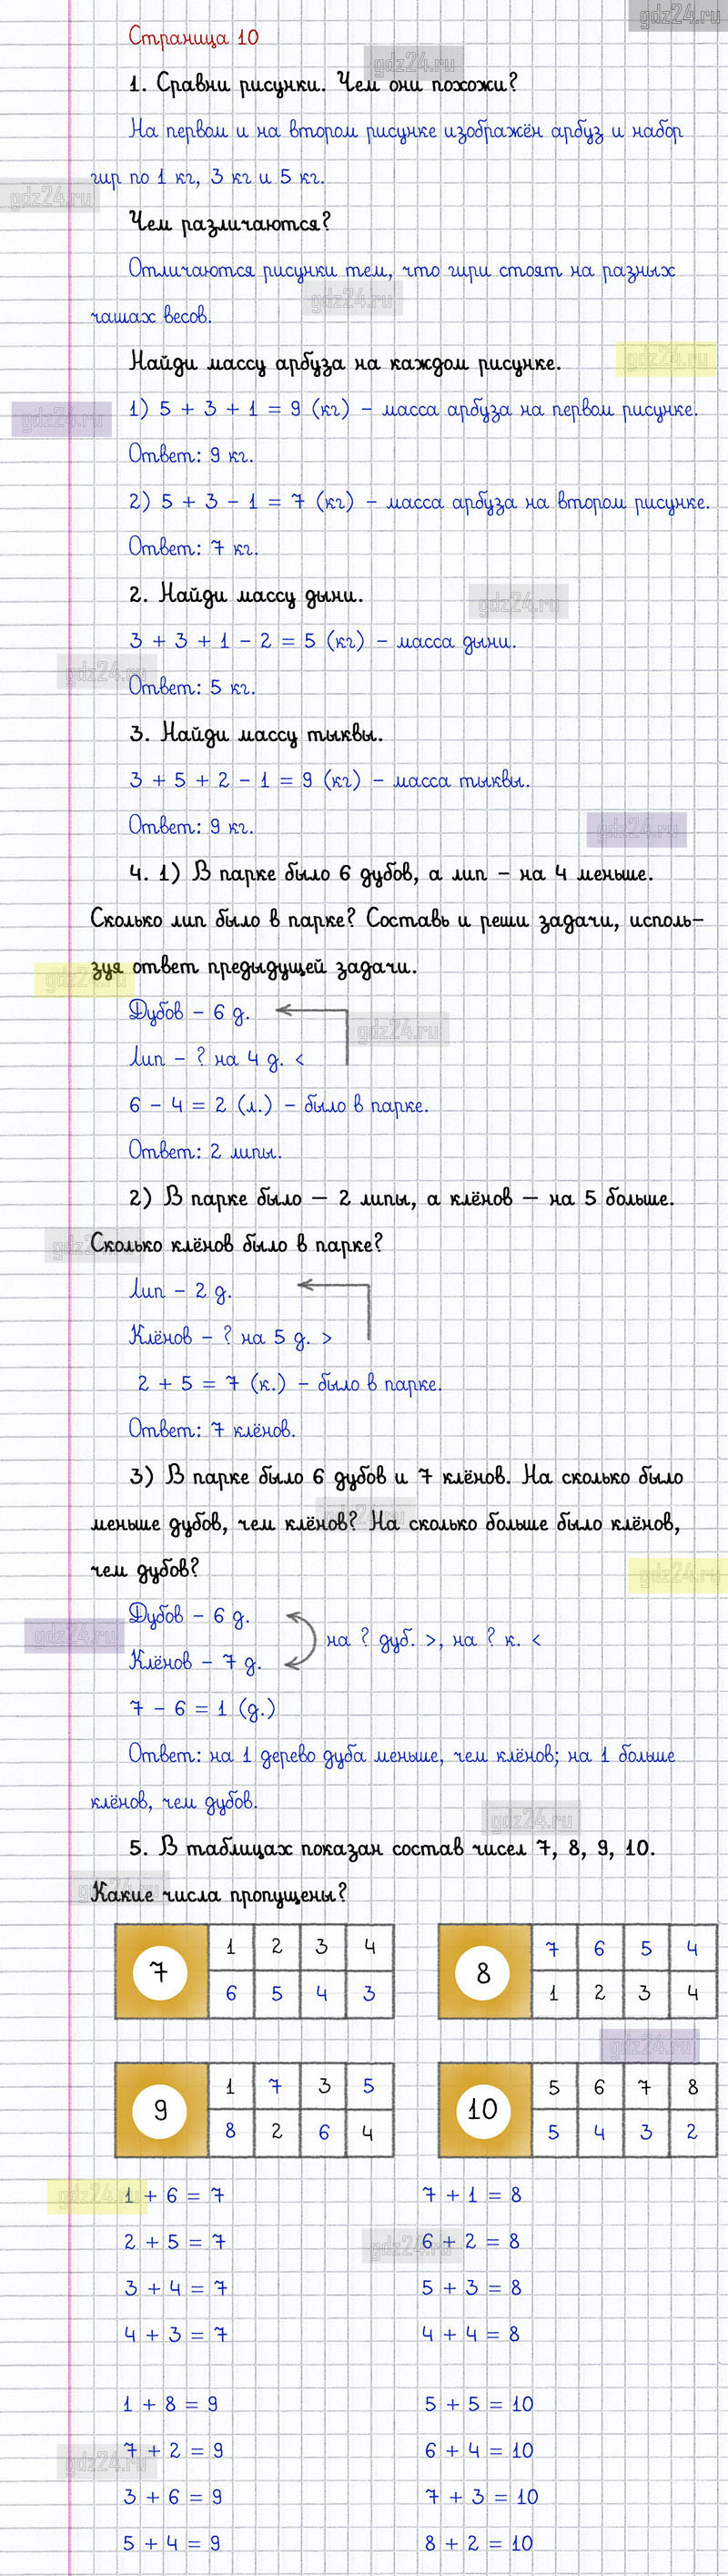 gdz24.ru
Страница 10
gdz24.ru
1. Сравни рисунки. Чем они похожи?
На первом и на втором рисунке изображён арбуз и набор
гир по 1 кг, 3 кг и 5 кг.
gdz24.ru
Чем различаются?
Отличаются рисунки тем, что гири стоят на разных
gdz24.ru
чашах весов.
Найди массу арбуза на каждом рисунке.
gdz24.ru
1) 5 + 3 + 1 = 9 (кг) – масса арбуза на первом рисунке.
gdz24.ru
Ответ: 9 кг.
2) 5 + 3 – 1 = 7 (кг) – масса арбуза на втором рисунке.
Ответ: 7 кг.
2. Найди массу дыни.
gdz24.ru
3 + 3 + 1 – 2 = 5 (кг) – масса дыни.
gdz24.ru
Ответ: 5 кг.
3. Найди массу тыквы.
3 + 5 + 2 – 1 = 9 (кг) – масса тыквы.
Ответ: 9 кг.
gdz24.ru
4. 1) В парке было 6 дубов, а лип – на 4 меньше.
Сколько лип было в парке? Составь и реши задачи, исполь-
зуя ответ предыдущей задачи.
gdz24.ru
Дубов – 6 д.
gdz24.ru
Лип – ? на 4 д. <
6 – 4 = 2 (л.) – было в парке.
Ответ: 2 липы.
2) В парке было – 2 липы, а клёнов – на 5 больше.
Сколько клёнов было в парке?
gdz24.ru
Лип – 2 д.
Клёнов – ? на 5 д. >
2 + 5 = 7 (к.) – было в парке.
Ответ: 7 клёнов.
3) В парке было 6 дубов и 7 клёнов. На сколько было
gdz24.ru
меньше дубов, чем клёнов? На сколько больше было клёнов,
чем дубов?
gdz24.ru
Дубов – 6 д.
gdz24.ru
на ? дуб. >, на ? к. <
Клёнов – 7 д.
7 – 6 = 1 (д.)
Ответ: на 1 дерево дуба меньше, чем клёнов; на 1 больше
клёнов, чем дубов.
gdz24.ru
5. В таблицах показан состав чисел 7, 8, 9, 10.
Какие числа пропущены?
gdz24.ru
7 1 2 3 4
6 5 4 3
8 7 6 5 4
1 2 3 4
gdz24.ru
9 1 7 3 5
8 2 6 4
10 5 6 7 8
5 4 3 2
gdz24.ru
1 + 6 = 7 7 + 1 = 8
2 + 5 = 7 6 + 2 = 8
gdz24.ru
3 + 4 = 7 5 + 3 = 8
4 + 3 = 7 4 + 4 = 8
1 + 8 = 9 5 + 5 = 10
7 + 2 = 9 6 + 4 = 10
gdz24.ru
3 + 6 = 9 7 + 3 = 10
5 + 4 = 9 8 + 2 = 10